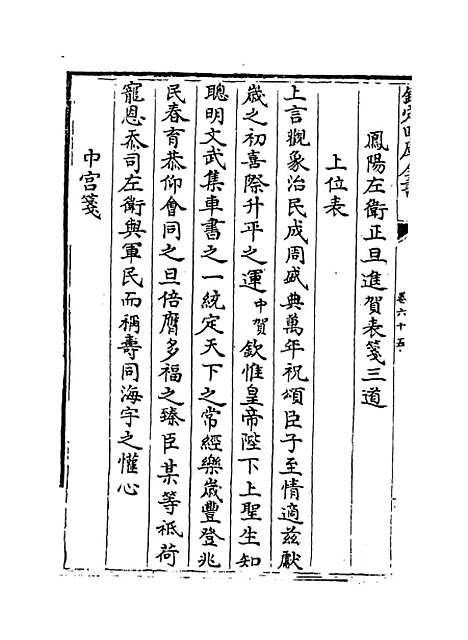 欽定四庫全書
卷六十五
鳳陽左衛正旦進賀表箋三道
上位表
上言觀象治民成周盛典萬年祝頌臣子至情適茲獻
歲之初喜際升平之運中賀欽惟皇帝陛下上聖生知
聰明文武集車書之一統定天下之常經樂歲豐登兆
民春育恭仰會同之旦倍膺多福之臻臣某等祗荷
寵恩忝司左衛與軍民而稱壽同海宇之懽心
中宫箋